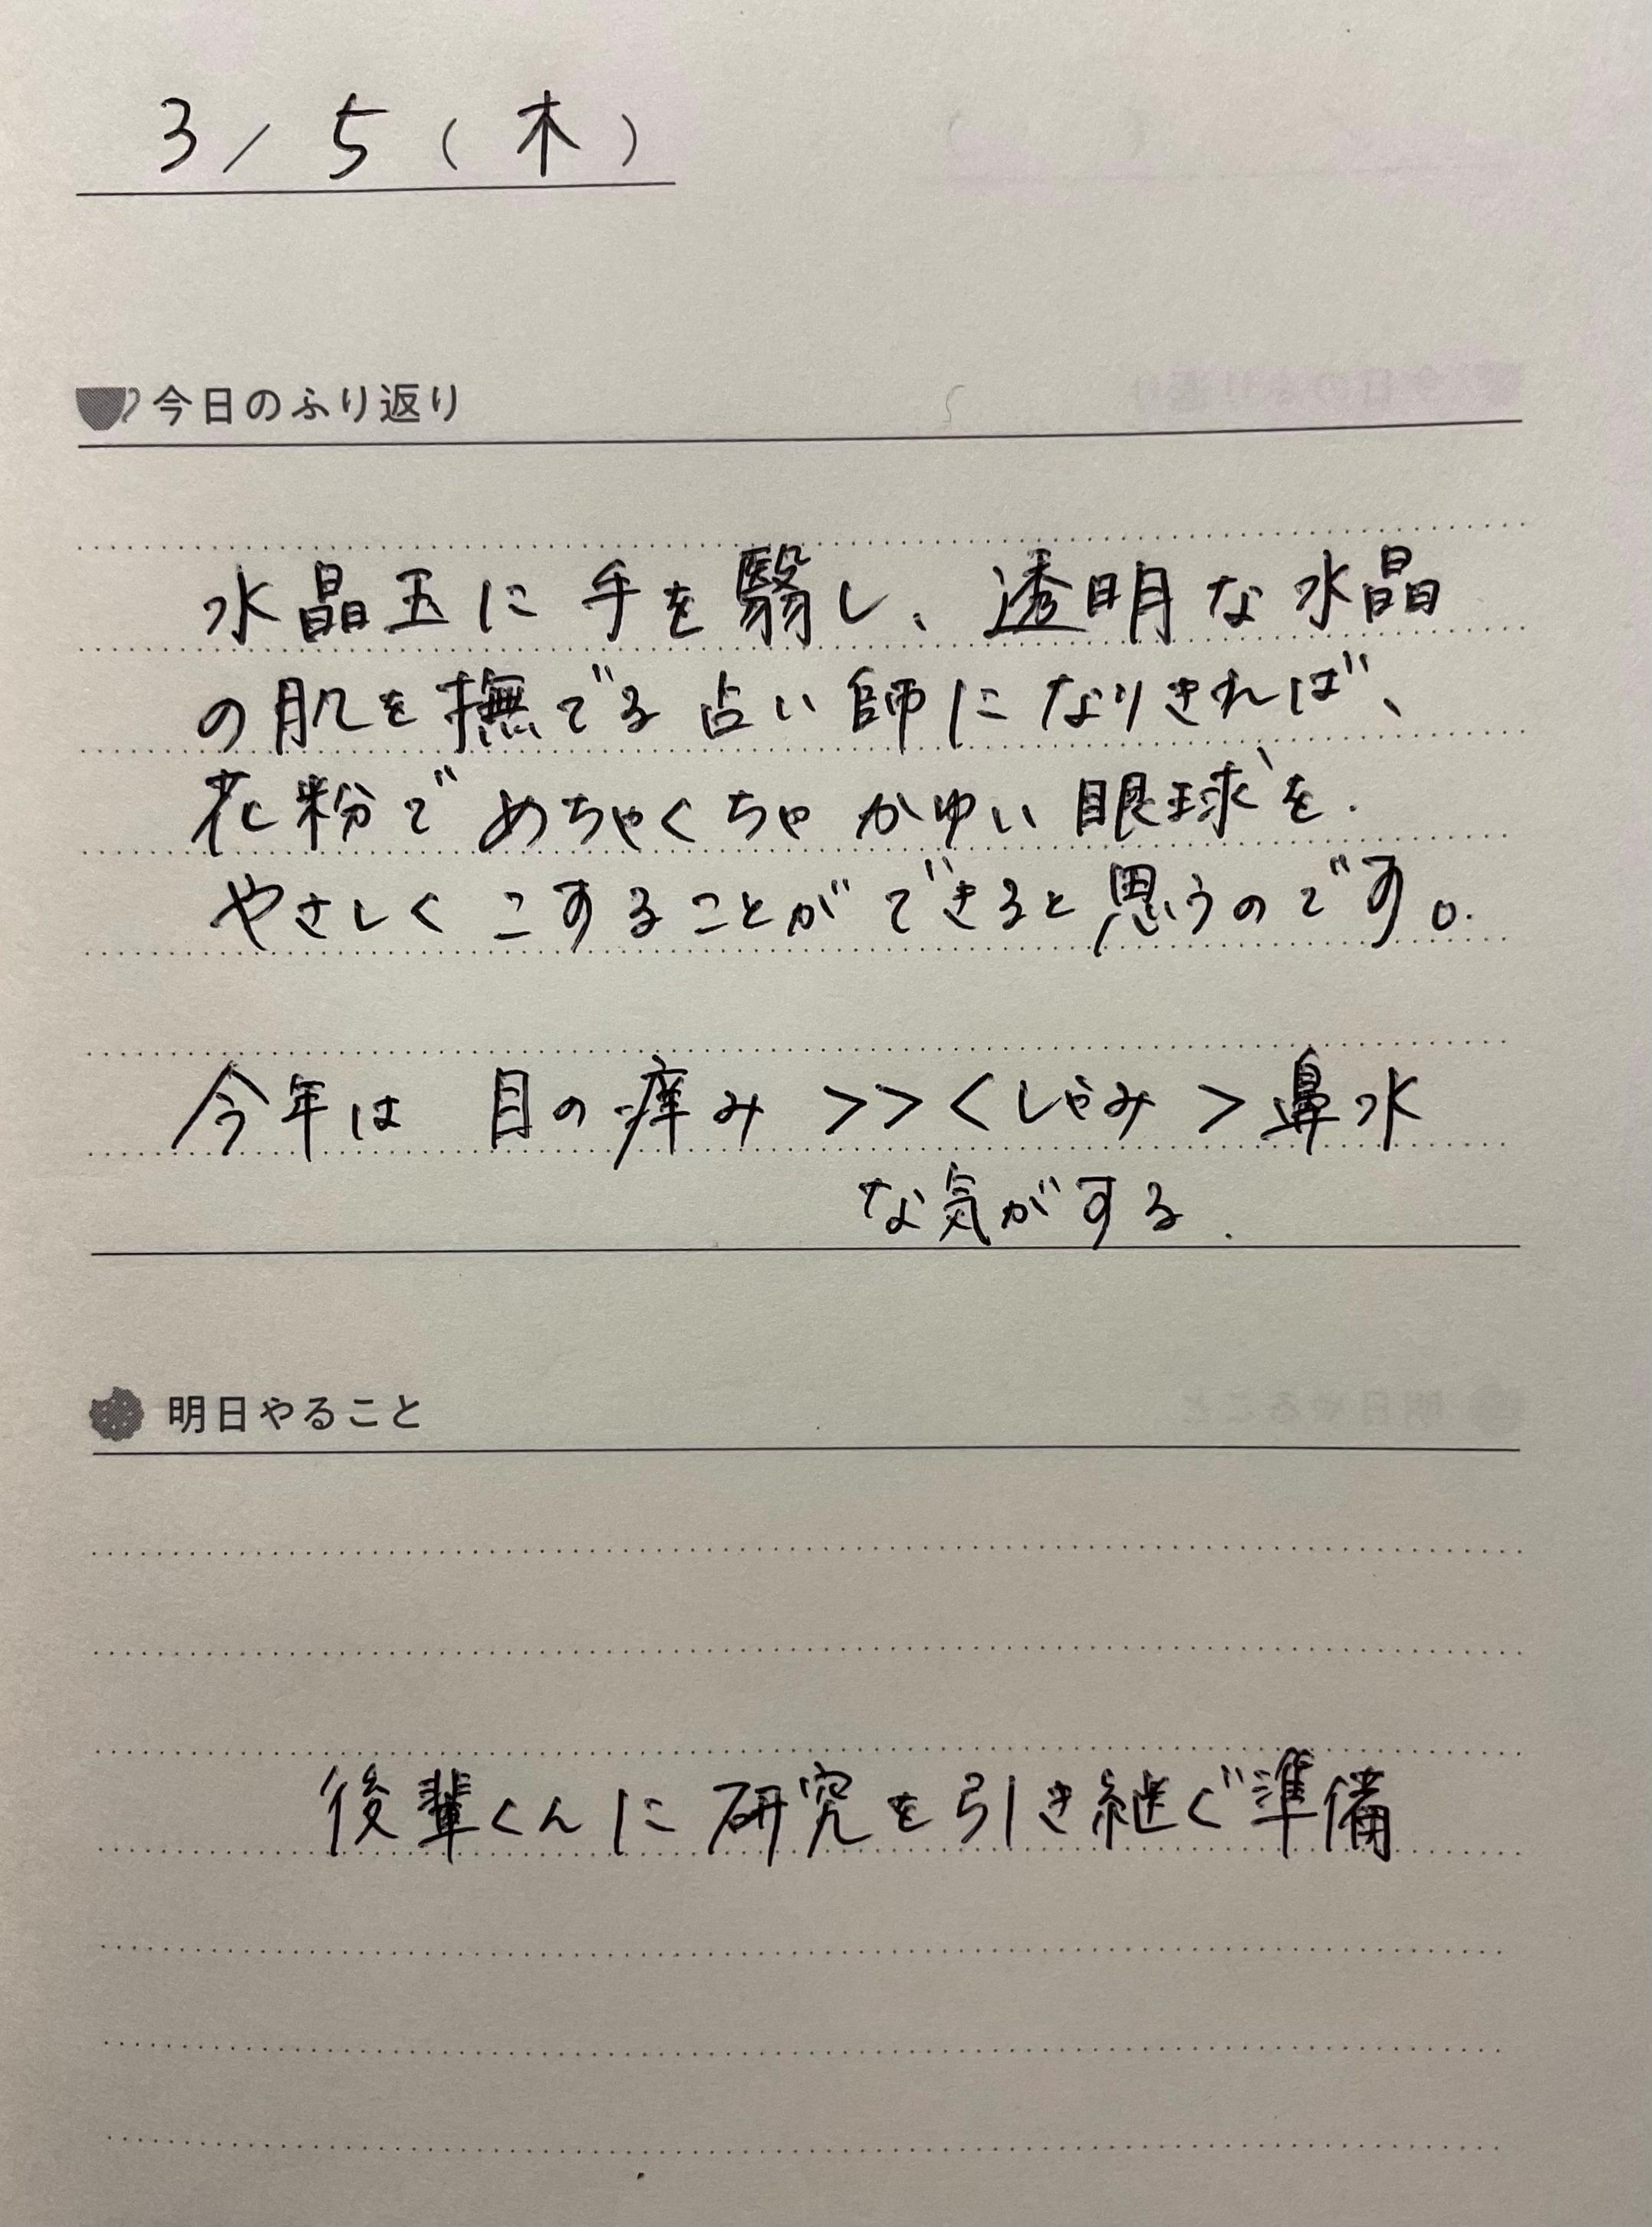 3/5(木)
今日のふり返り
水晶玉に手を翳し、透明な水晶
の肌を撫でる占い師になりきれば、
花粉でめちゃくちゃかゆい眼球を
やさしくこすることができると思うのです。
今年は 目の痒み >>くしゃみ>鼻水
な気がする.
明日やること
後輩くんに研究を引き継ぐ準備